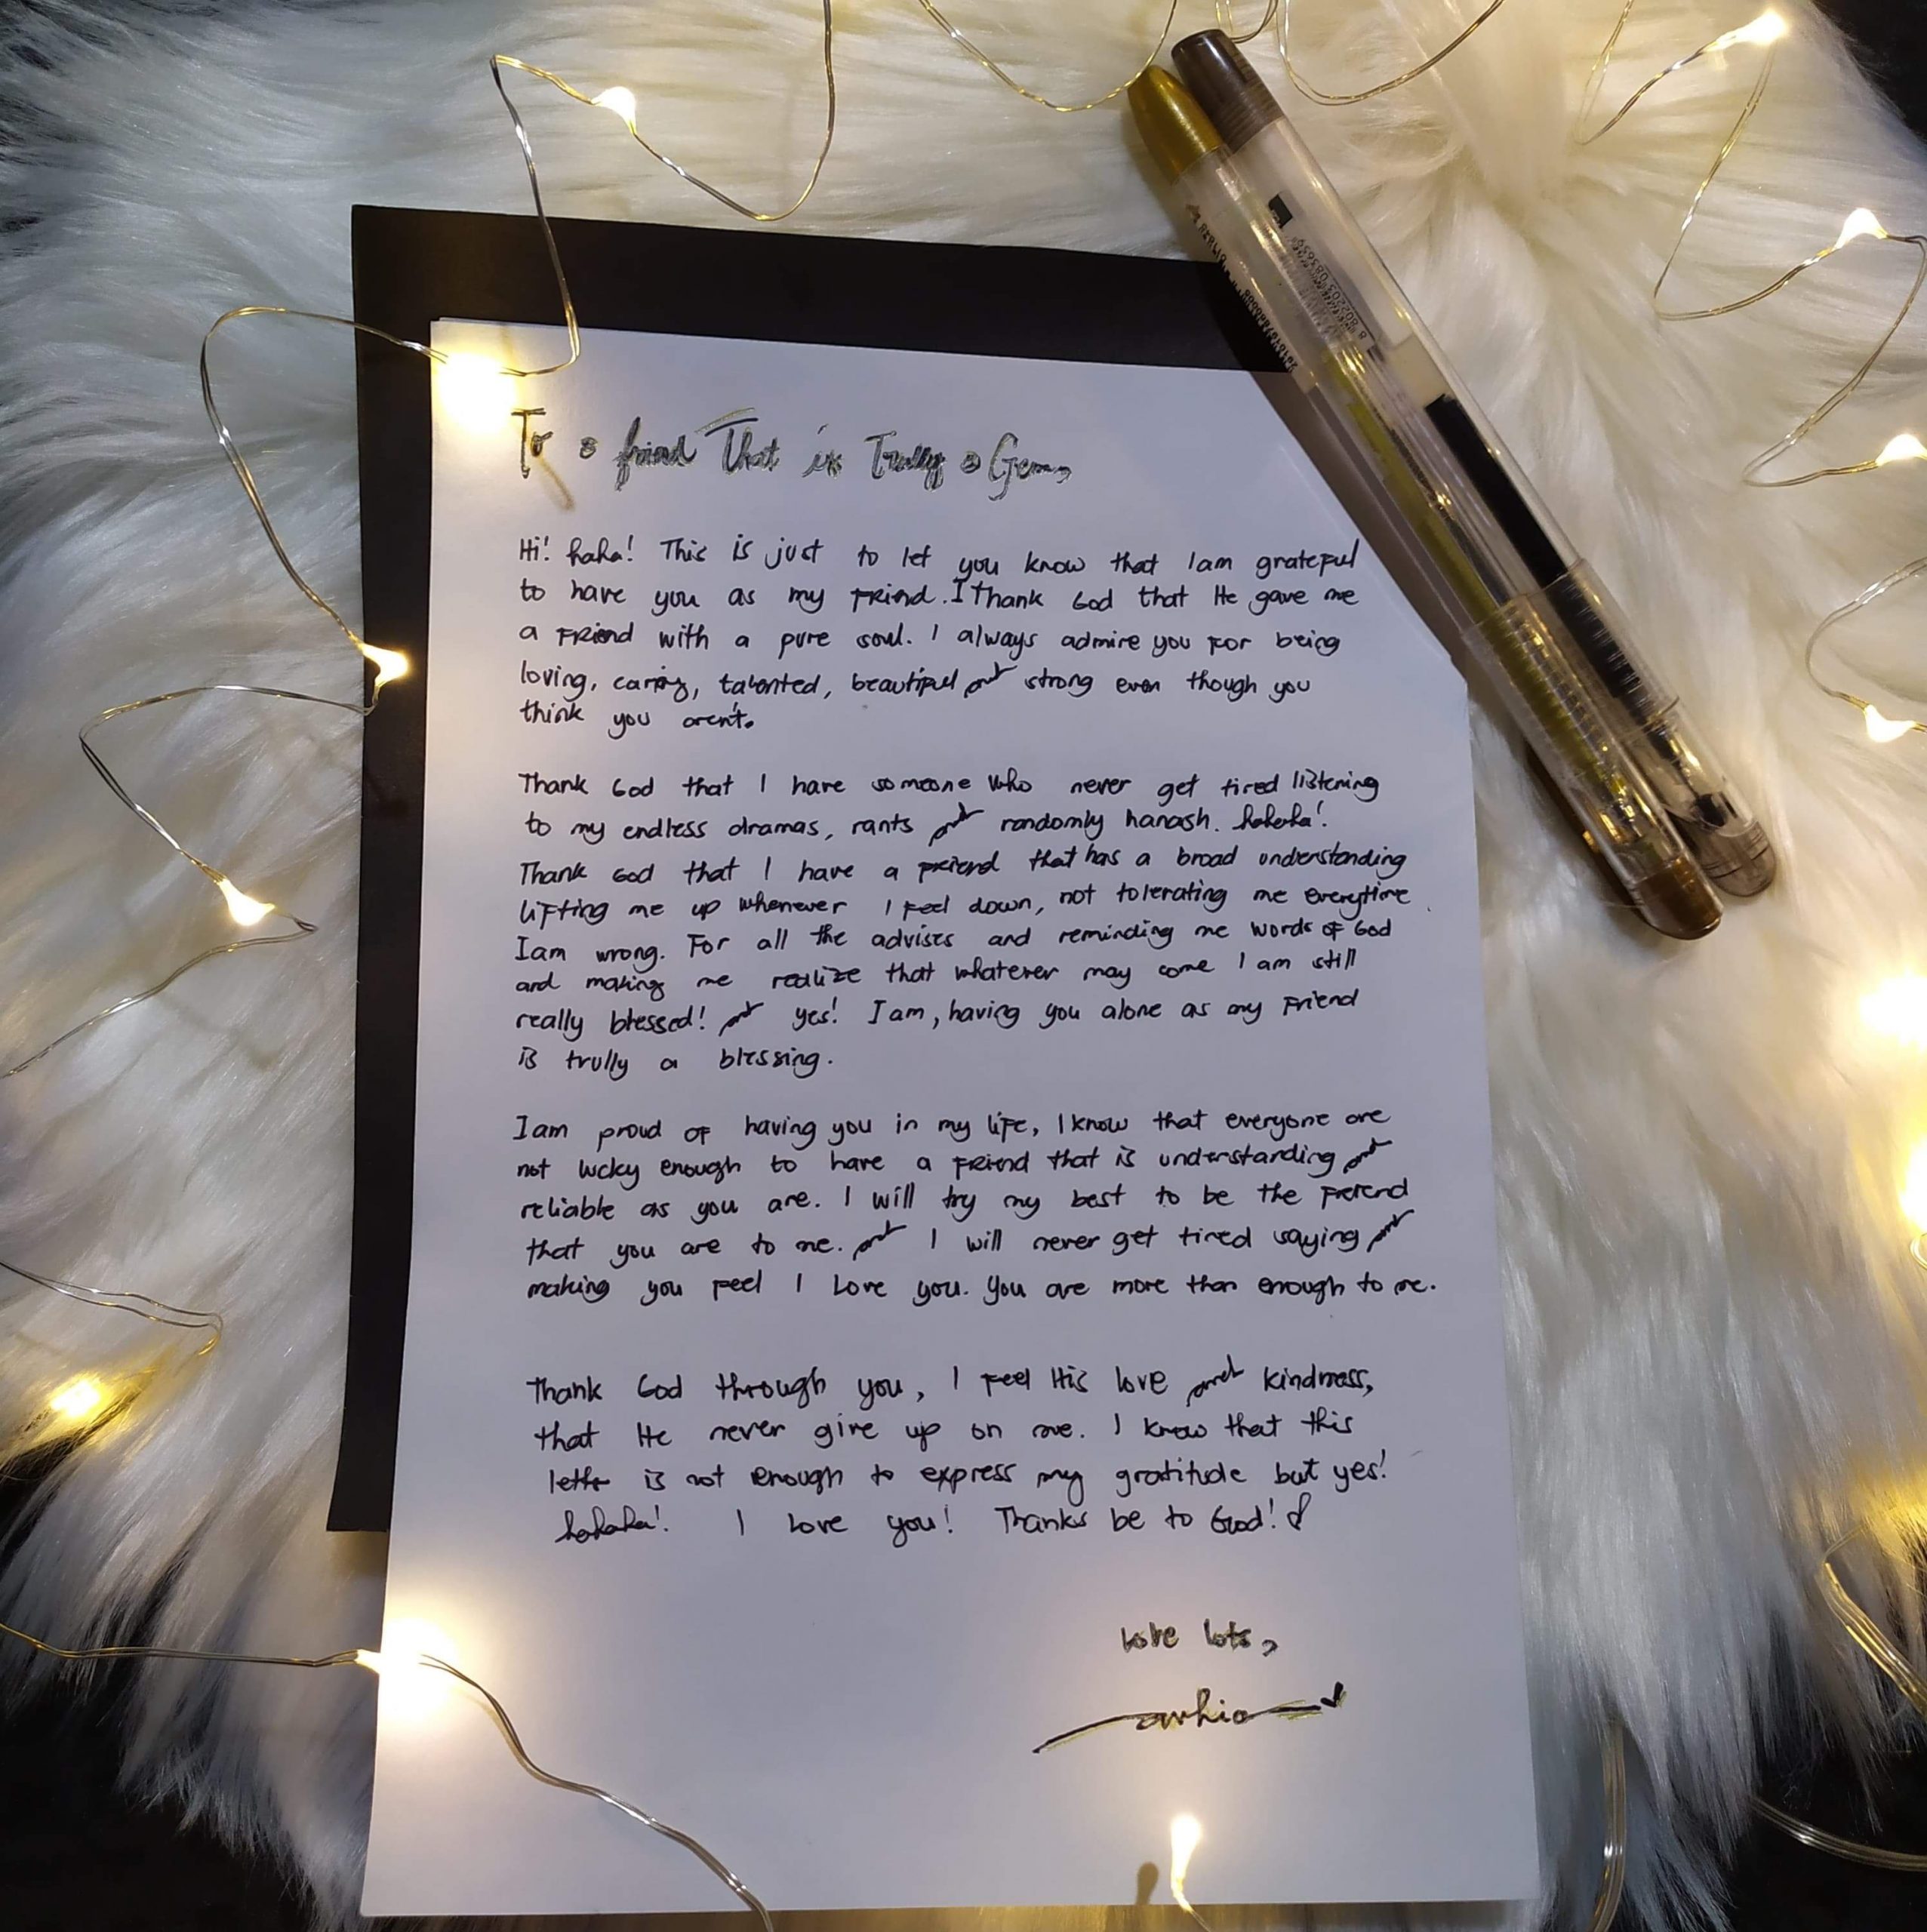 To a friend That is Trully a Gem,
Hi! haha! This is just to let you know that I am grateful
to have you as my Friend. I Thank God that He gave me
a Friend with a pure soul. I always admire you For being
loving, caring, talented, beautiful and strong even though you
think you aren't.
Thank God that I have someone who never get tired listening
to my endless dramas, rants and randomly hanash. hahaha!
Thank God that I have a Friend that has a broad understanding
lifting me up whenever I Feel down, not tolerating me everytime
I am wrong. For all the advises and reminding me words of God
and making me realize that whatever may come I am still
really blessed! and yes! I am, having you alone as my Friend
is trully a blessing.
I am proud of having you in my life, I know that everyone are
not lucky enough to have a Friend that is understanding and
reliable as you are. I will try my best to be the Friend
that you are to me. and I will never get tired saying and
making you Feel I Love you. You are more than enough to me.
Thank God through you, I Feel His love and kindness,
that He never give up on me. I know that this
letter is not enough to express my gratitude but yes!
hahaha! I Love you! Thanks be to God!
Love lots,